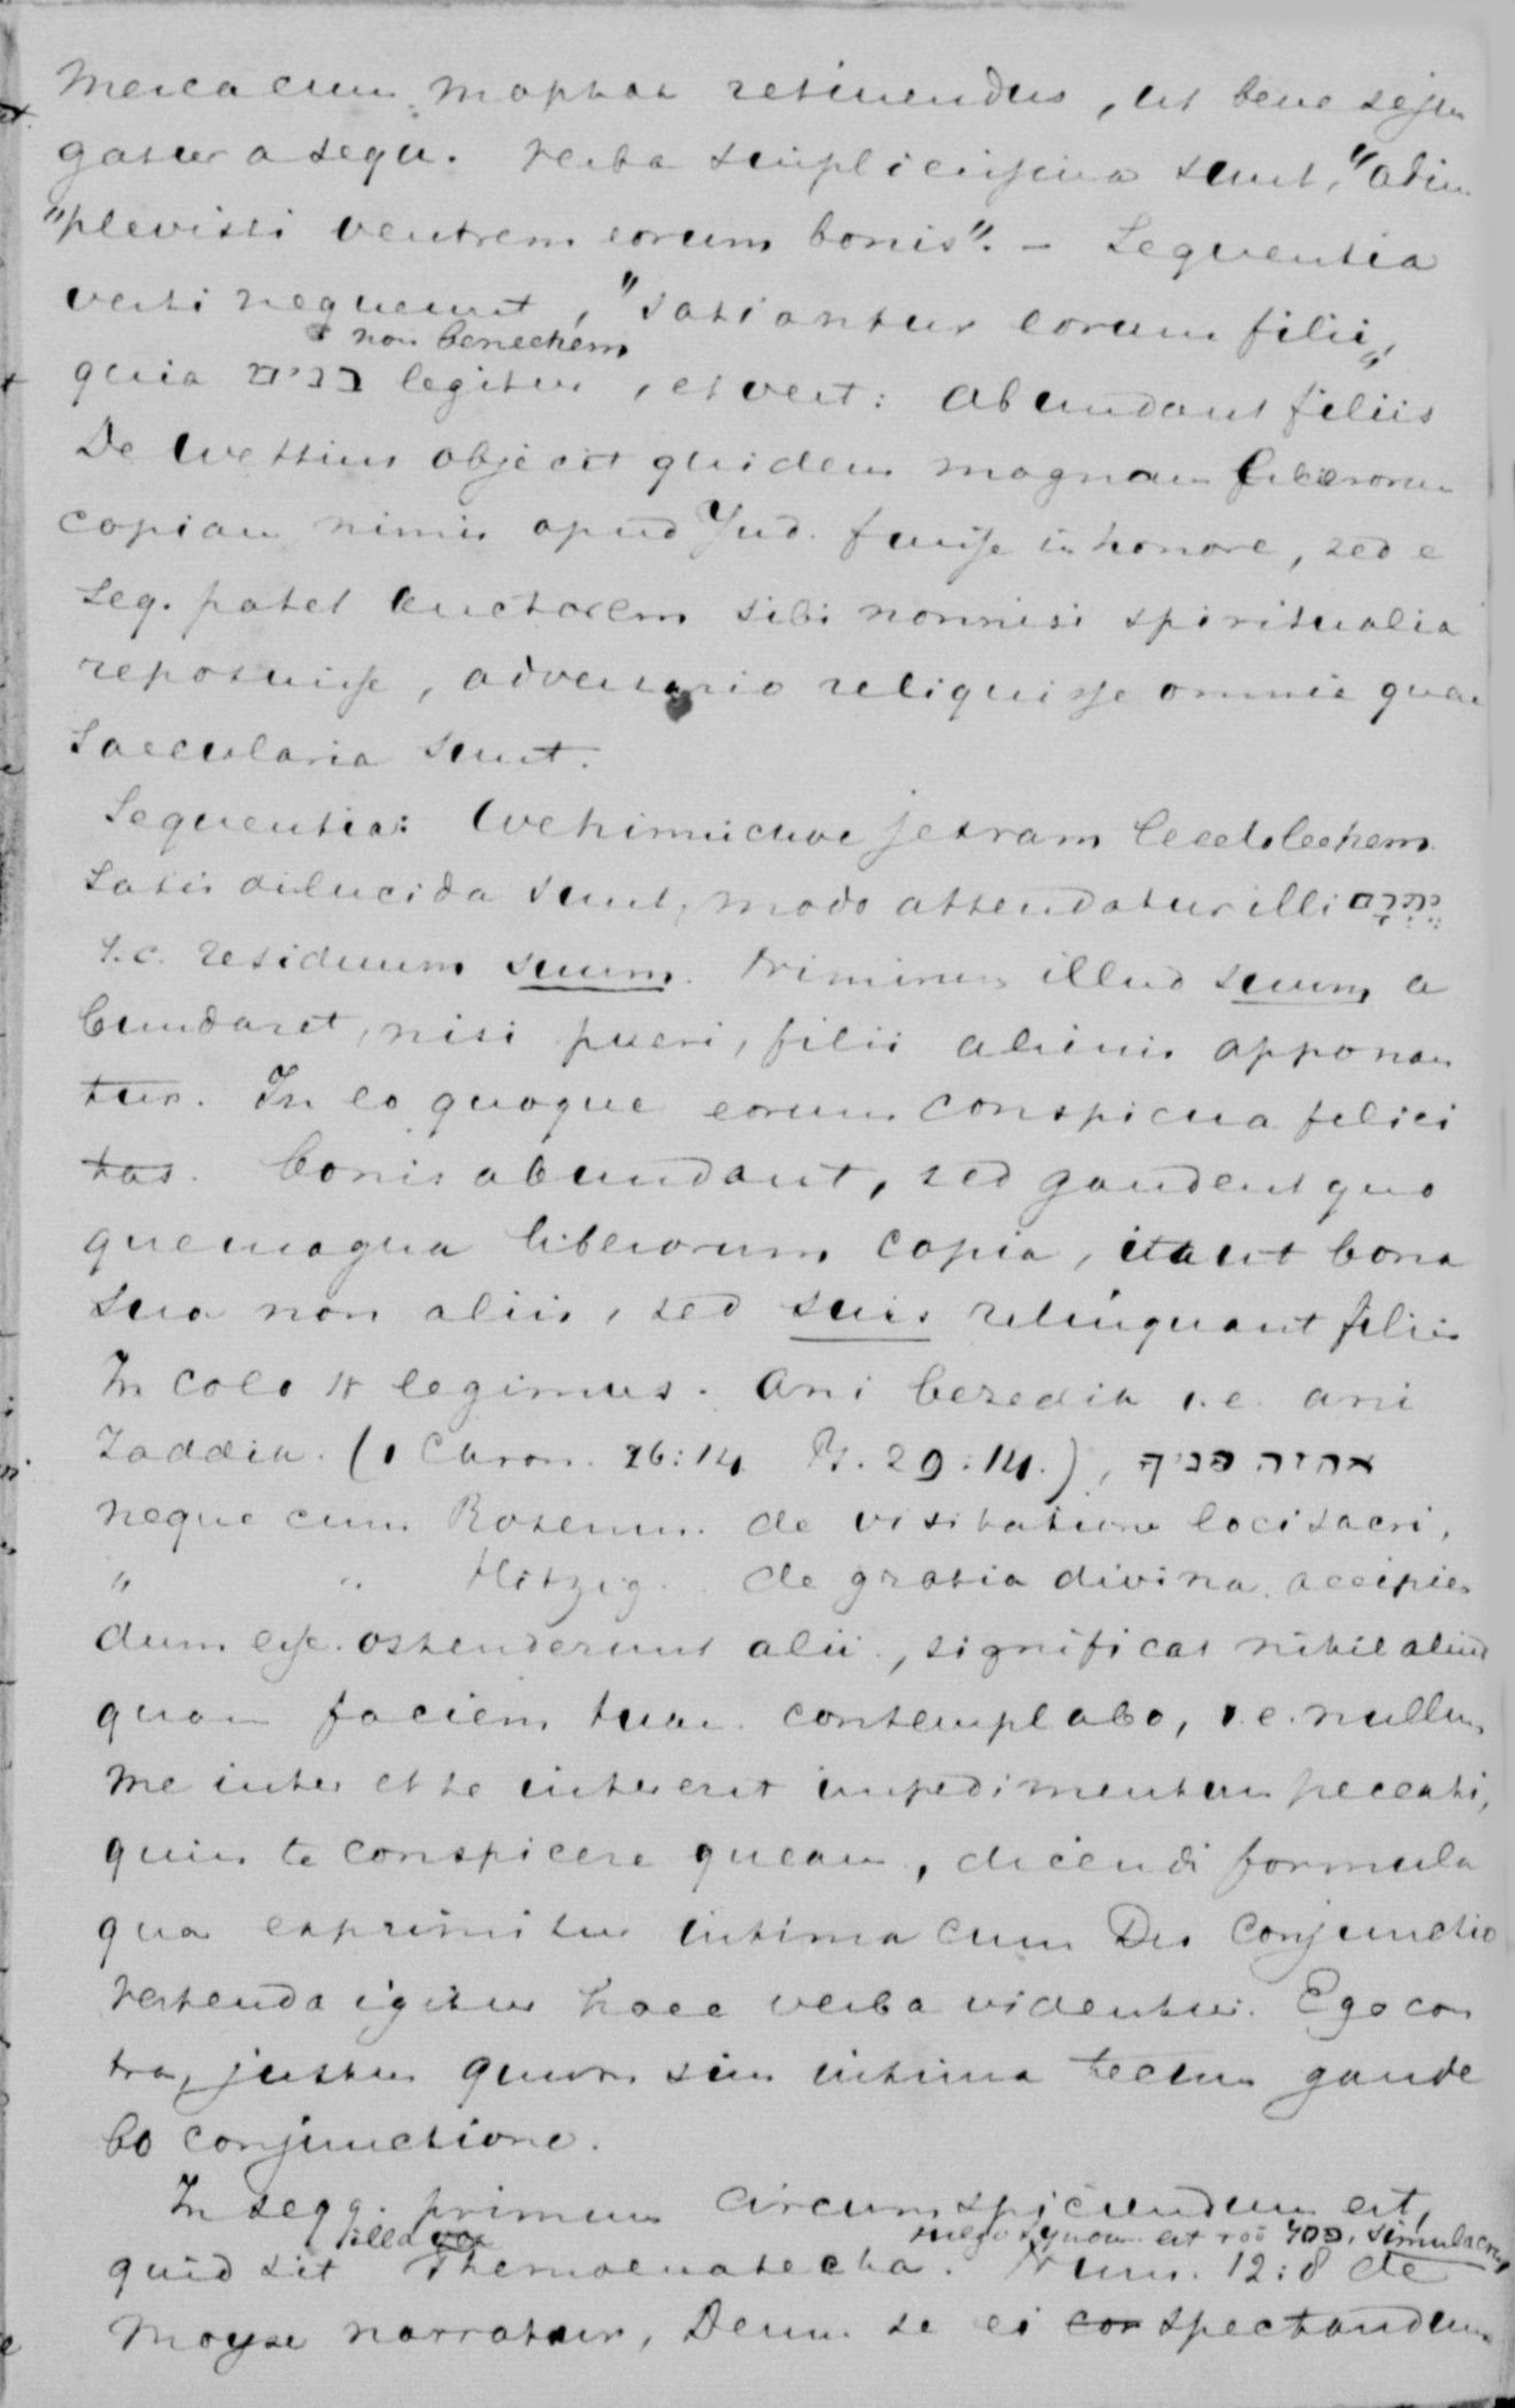 Mercacum Maphat retinendus, ut bene sejun
gatur a sequ. Verba simplicissima sunt, "adim
"plevisti ventrem eorum bonis". – Sequentia
verti nequeunt, "satiantur eorum filii,"
non benechem
quia בנים legitur, et vert: abundant filiis
De Wettius objecit quidem magnam liberorum
copiam nimis apud Jud. fuisse in honore, sed e
seq. patet auctorem sibi nonnisi spiritualia
reposuisse, adversario reliquisse omnia quae
saecularia sunt.
Sequentia: Wehinnichoe jetram leeolelechem
satis dilucida sunt, modo attendatur illi יתרם
i.e. residuum suum. Nimirum illud suum a
bundaret, nisi pueri, filii alienis apponan
tur. In eo quoque eorum conspicua felici
tas. Bonis abundant, sed gaudent quo
que magna liberorum copia, ita ut bona
sua non aliis, sed suis relinquant filiis
In colo legimus. Ani bezedik i.e. ani
Zaddik. (1 Chron. 26:14 Ps. 29:14.), אחזה פניך
neque cum Rosenm. de visitatione loci sacri,
" " Hitzig. de gratia divina accipien
dum esse ostenderunt alii, significat nihil aliud
quam faciem tuam contemplabo, i.e. nullum
me inter et te intererit impedimentum peccati,
quin te conspicere queam, dicendi formula
qua exprimitur intima cum Deo conjunctio
Vertenda igitur haec verba videntur. Ego con
tra, justus quum sim intima tecum gaude
bo conjunctione.
In seqq. primum circumspiciendum est,
illa vox synon. est τοῦ פסל, simulacrum
quid sit Themoenatecha. Num. 12:8 de
Moyse narratur, Deum se ei con spectandum